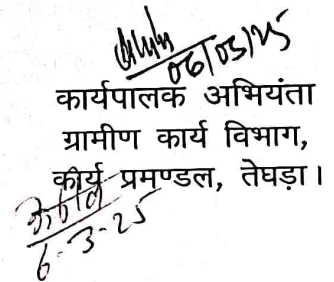 06/03/25
कार्यपालक अभियंता
ग्रामीण कार्य विभाग,
कार्य प्रमण्डल, तेघड़ा।
6-3-25